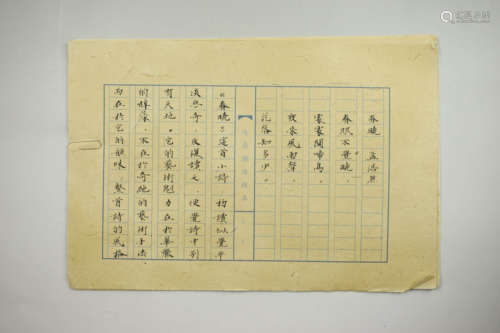 春晓 孟浩然
春眠不覺晓，
處處闻啼鳥，
夜来風雨聲，
花落知多少。
《春晓》這首小詩，初讀似覺平
淡無奇，反復讀之，便覺詩中别
有天地。它的藝術魁力在於華麗
的辭藻，不在於奇絶的藝術手法，
而在於它的韻味。整首詩的風格